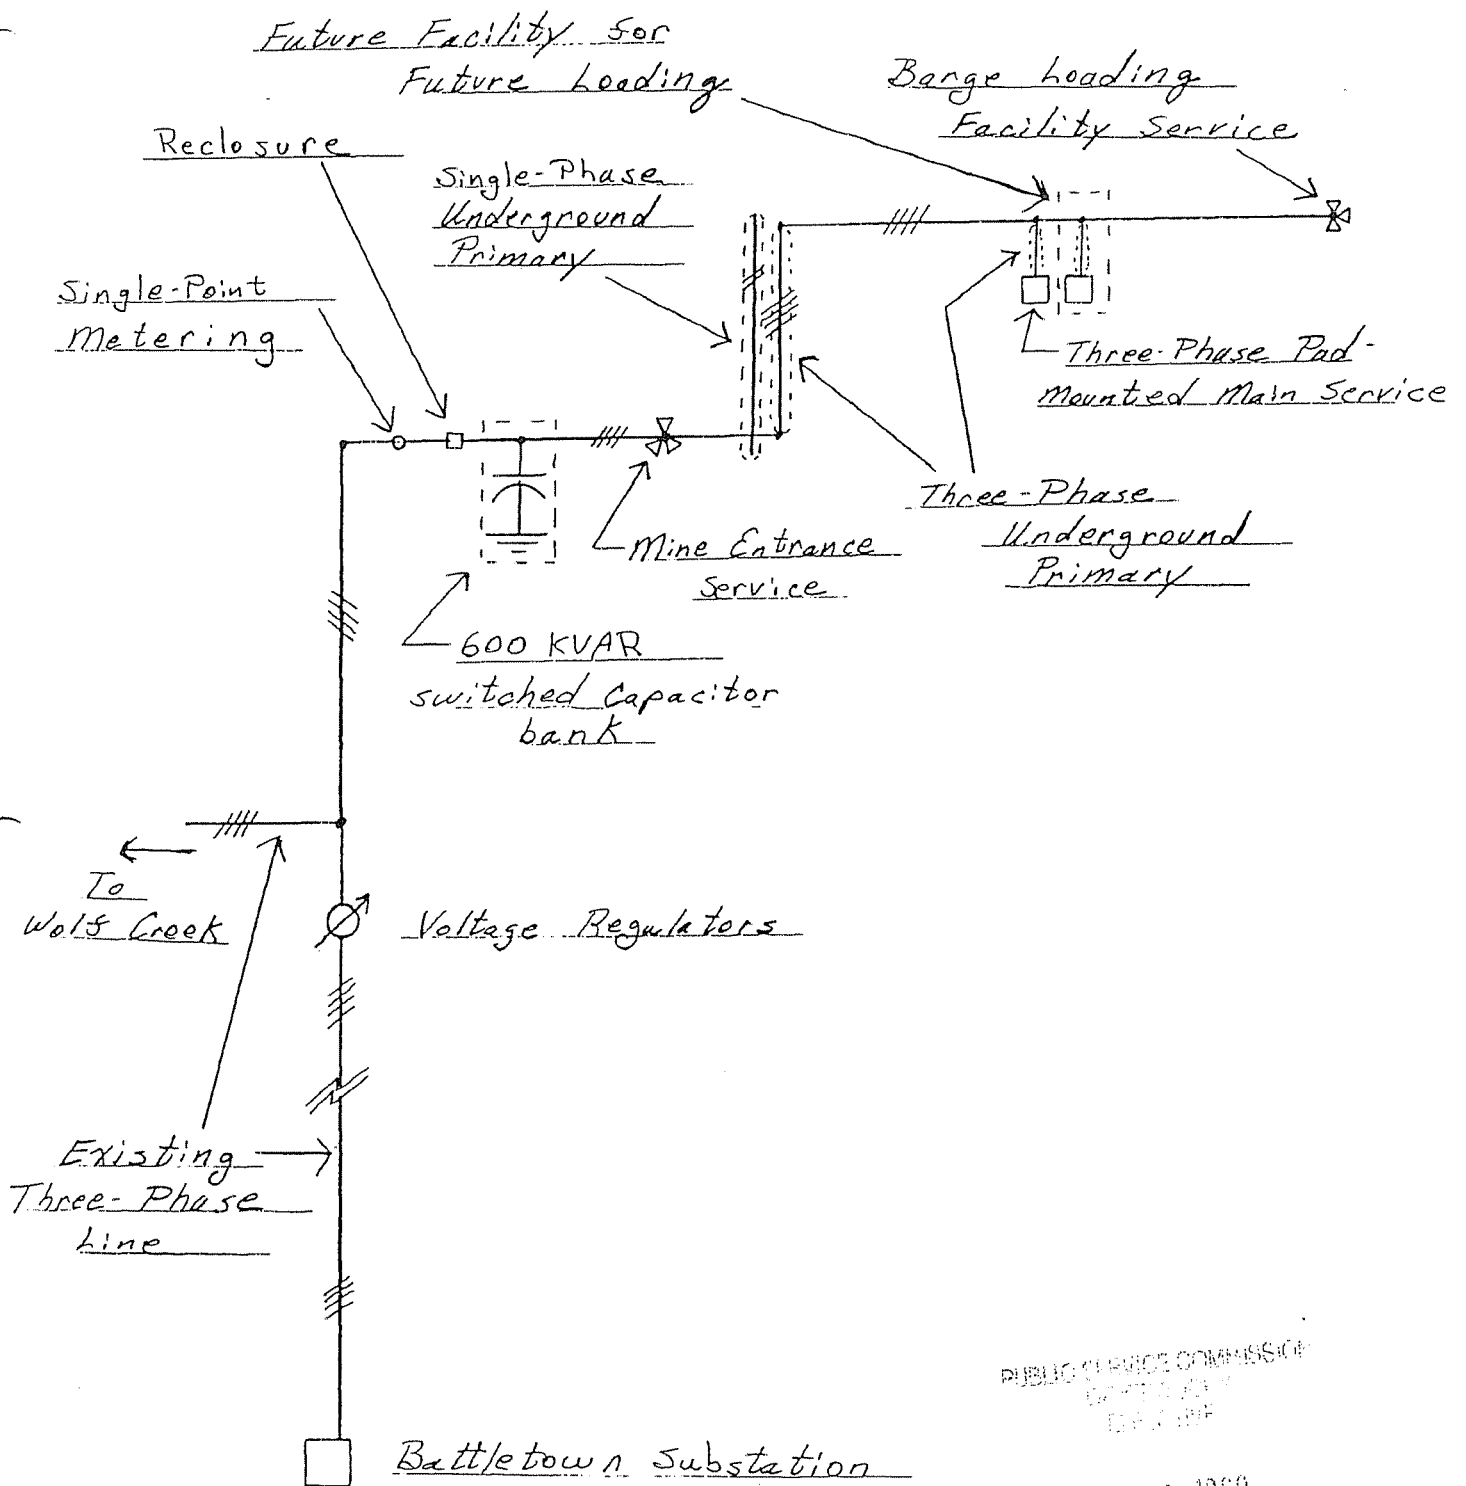 Future Facility for
Future Loading
Barge Loading
Facility Service
Reclosure
Single-Phase
Underground
Primary
Single-Point
Metering
Three-Phase Pad-
mounted Main Service
Three-Phase
Underground
Primary
Mine Entrance
Service
600 KVAR
switched Capacitor
bank
To
Wolf Creek
Voltage Regulators
Existing
Three-Phase
Line
Battletown Substation
PUBLIC SERVICE COMMISSION